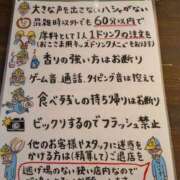 大きな声を出さない ハシャがない
混雑時以外でも60分以内で
席料として1人1ドリンクの注文を
(お子さま用キッズドリンクメニューもあります)
香りの強い方はお断り
ゲーム音 通話、タイピング音は控えて
食べ残しの持ち帰りはお断り
ビックリするのでフラッシュ禁止
他のお客様やスタッフに迷惑を
かける方は(精算して)ご退店を
逃げ場のない狭い店内なので